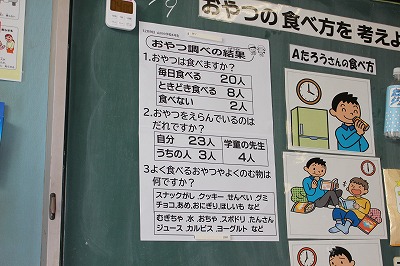 おやつの食べ方を考えよ
Aたろうさんの食べ方
おやつ調べの結果
1.おやつは食べますか?
毎日食べる 20人
ときどき食べる 8人
食べない 2人
2.おやつをえらんでいるのは
だれですか?
自分 23人 学童の先生
うちの人 3人 4人
3よく食べるおやつやよくのむ物は
何ですか?
スナックがし,クッキー,せんべい,グミ
チョコ,あめ,おにぎり,ほしいも など
むぎちゃ,水,おちゃ,スポドリ,たんさん
ジュース カルピス ヨーグルト など